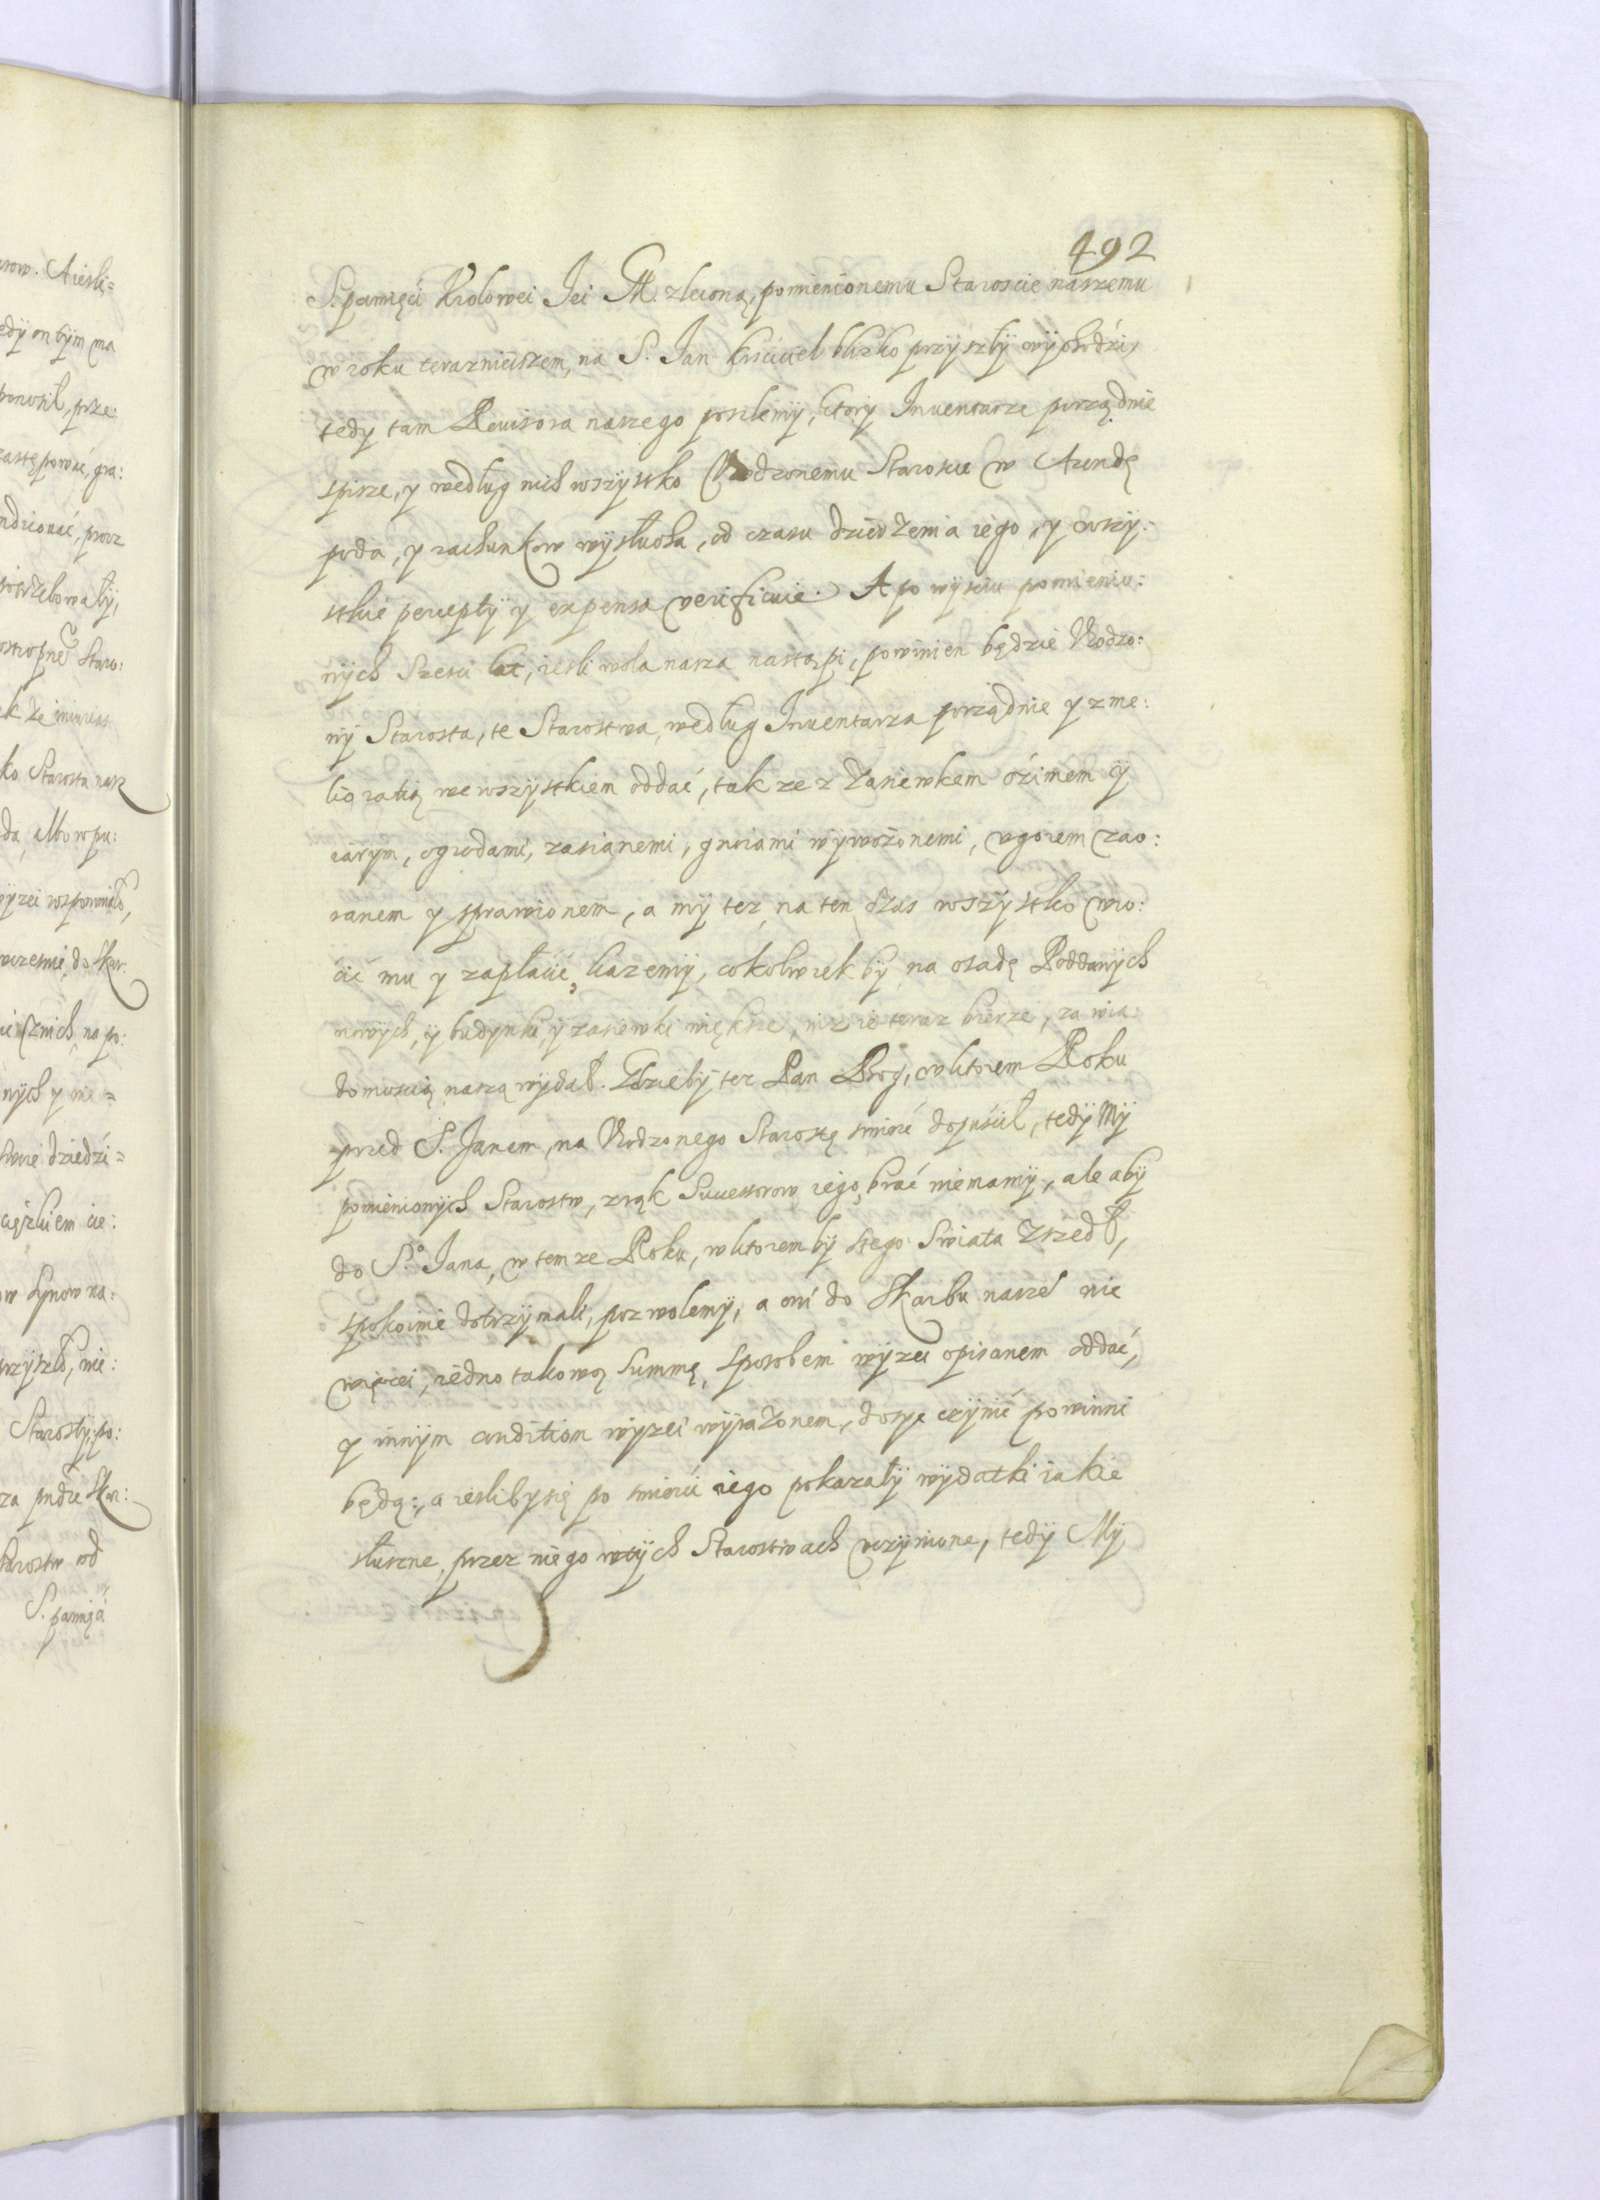 492
S. pamięci Krolowei Jei M. zleconą, pomienionemu Staroscie naszemu
w roku teraznieiszem, na S. Jan krsciciel blizko przyszły wychodzi,
tedy tam Revisora naszego poslemÿ, ktorÿ Inventarze porządnie
spisze, y według nich wszystko Urodzonemu Staroscie w Arendę
poda, y rachunkow wysłucha, od czasu dzierżenia iego, y wszÿ:
stkie percepty y expensa verificuie. A po wysciu pomienio:
nÿch szesci lat, iesli wola nasza nastąpi, powinien będzie Urodzo:
nÿ Starosta, te Starostwa, według Inventarza porządnie y z me:
lioratią we wszystkiem oddać, tak ze z Zasiewkem ozimem ÿ
iarym, ogrodami, zasianemi, gnoiami wywożonemi, ugorem zao:
ranem y sprawionem, a mÿ tez na ten czas wszystko wro:
cić mu y zapłacić każemÿ, cokolwiek bÿ na osadę Poddanÿch
nowÿch, ÿ budynki, ÿ zasiewki większe, niz ie teraz bierze, za wia
domoscią naszą wydał. Gdzieby tez Pan Bog, w ktorem Roku
przed S. Janem, na Urodzonego Starostę smierć dopuścił, tedÿ Mÿ
pomienionÿch Starostw, z rąk Successorow iego, brać nie mamÿ, ale abÿ
do S.º Jana, w temze Roku, w ktorem bÿ z tego Swiata Zszedł,
spokoinie dotrzymali, pozwolemÿ, a oni do Skarbu naszeº nie
więcei, iedno takową Summę, sposobem wyzei opisanem oddać,
y innÿm conditiom wÿzei wÿrażonem, dosyc czÿnić powinni
będą:, a ieslibysię po smierci iego pokazałÿ wÿdatki iakie
słuszne, przez niego w tÿch Starostwach uczynione, tedÿ Mÿ